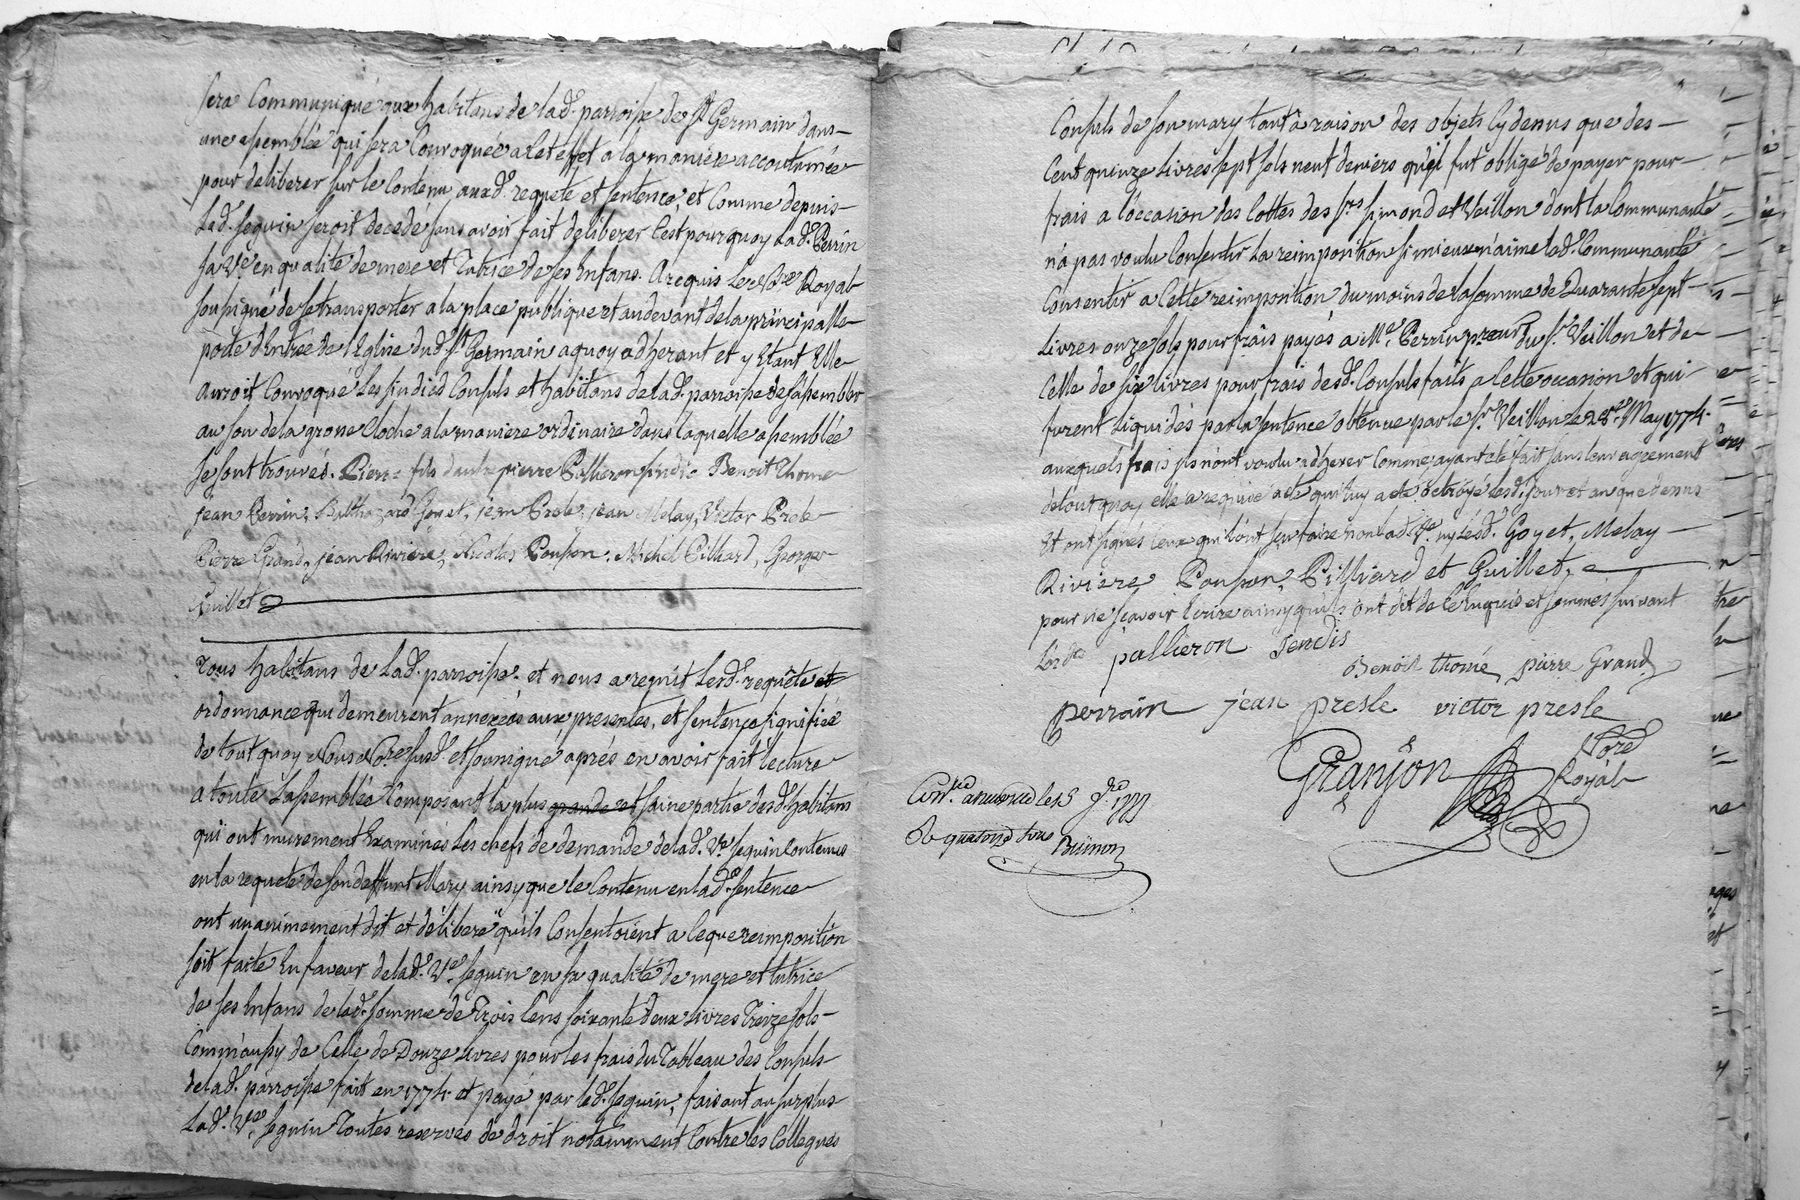 sera Communiqué aux habitans de lad. parroisse de St Germain dans
une assemblée qui sera Convoquée a cet effet a la maniere accoutumée
pour deliberer sur le Contenu auxd. requete et sentence, et Comme depuis
Led. Seguin seroit decede sans avoir fait deliberer C'est pourquoy Lad. Perrin
sa Ve en qualité de mere et Tutrice de ses Enfans. A requis Le Nre Royal
soussigné de se transporter a la place publique et au devant de la principalle
porte d'Entrée de l'Eglise dud. St Germain a quoy adherant et y Etant Elle
auroit Convoqué Les sindics Consuls et habitans de lad. parroisse de s'assembler
au son de la grosse Cloche a la maniere ordinaire dans laquelle assemblée
se sont trouvés. Pierre fils d'autre pierre Pallieron sindic Benoit Thome
jean Perrin, Balthazard Goyet, jean Prele, jean Melay, Victor Prele
Pierre Grand, jean Riviere, Nicolas Ponson, Michel Pilliard, George
Guillet
Tous habitans de Lad. parroisse et nous a requit Lesd. requête et
ordonnance qui demeurent annexées aux presentes, et sentence signifiée
de tout quoy Nous Nore susd. et soussigné après en avoir fait lecture
a toute L'assemblée Composant la plus grande et saine partie desd. habitans
qui ont murement Examinés Les chefs de demande de lad. Ve Seguin Contenus
en la requete de son deffunt Mary ainsy que le Contenu en lad. sentence
ont unanimement dit et déliberé qu'ils Consentoient a ce que reimposition
soit faite En faveur de lad. Ve Seguin en sa qualité de mere et tutrice
de ses Enfans de lad. somme de Trois Cens soixante deux Livres Treize sols
Comm'aussy de Celle de Douze Livres pour les frais du Tableau des Consuls
de lad. parroisse fait en 1774 et payé par led. Seguin, faisant au surplus
Lad. Ve Seguin Toutes reserves de droit notamment Contre les Collegues
Consuls de son mary tant à raison des objets Cydenus que des
Cent quinze Livres sept sols neuf deniers qu'il fut obligé de payer pour
frais a l'occasion des Cottes des Srs simond et Veillon dont la Communauté
n'a pas voulu Consentir La reimposition si mieux n'aime lad. Communauté
Consentir a Cette reimposition du moins de la somme de Quarante sept
Livres onze sols pour frais payés a Me Perrin pceur du Sr Veillon et de
Celle de six livres pour frais desd. Consuls faits a Cette occasion et qui
furent Liquidés par la sentence obtenue par le Sr Veillon le 28e May 1774
auxquels frais ils n'ont voulu adherer Comme ayant été fait sans leur agrement
de tout quoy elle a requis acte qui luy a eté octroyé lesd. jour et an que denus
Et ont signés Ceux qui l'ont sçu faire non lad. Ve ny lesd. Goyet, Melay
Riviere, Ponson, Pilliard et Guillet,
pour ne sçavoir Ecrire ainsy qu'ils ont dit de ce Enquis et sommés suivant
L'ordce pallieron sendis
Benoit thomé pierre Grand
perrain jéan presle victor presle
Granjon Nore Royal
Conlé a
le 1777
Rs quatorze sous